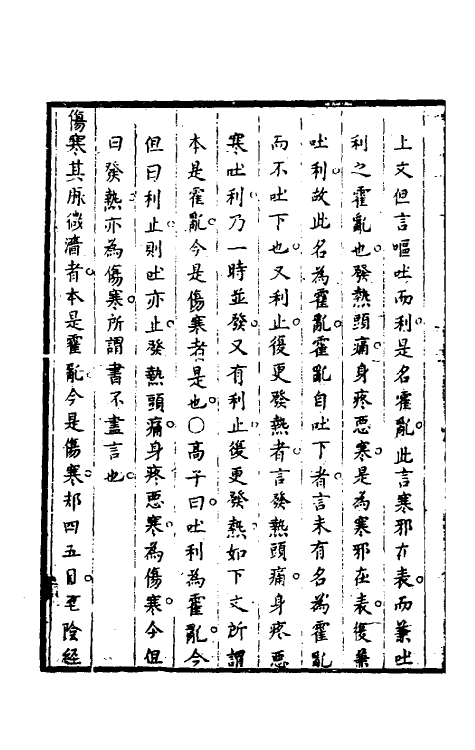 上文但言嘔吐而利。是名霍亂。此言寒邪在表。而兼吐
利之霍亂也。發熱頭痛。身疼惡寒。是為寒邪在表。復兼
吐利。故此名為霍亂。霍亂自吐下者。言未有名為霍亂
而不吐下也。又利止。復更發熱者。言發熱頭痛。身疼惡
寒吐利。乃一時並發。又有利止後更發熱。如下文所謂
本是霍亂。今是傷寒者是也。〇高子曰。吐利為霍亂。今
但曰利止。則吐亦止。發熱頭痛。身疼惡寒。為傷寒。今但
曰發熱。亦為傷寒。所謂書不盡言也。
傷寒其脉微濇者。本是霍亂。今是傷寒。却四五日。至陰經